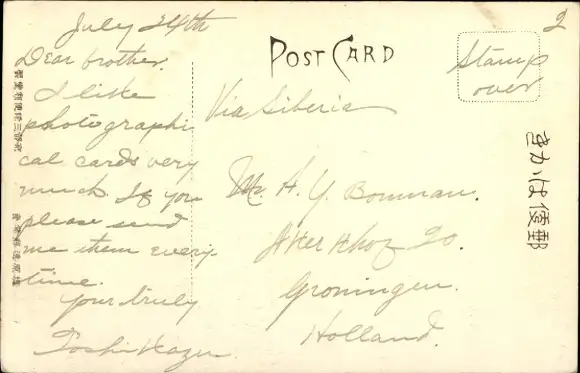 July 24th
Dear brother.
I like
photographi
cal cards very
much. If you
please send
me them every
time.
Your truly
POST CARD
Via Siberia
Mr. H. Y. Bouman.
Groningen.
Holland.
Stamp
over
2
きかは便郵